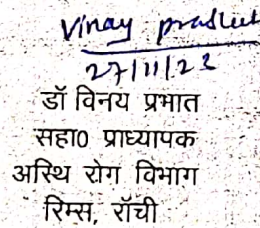 Vinay prabhat
27/11/23
डॉ विनय प्रभात
सहा0 प्राध्यापक
अस्थि रोग विभाग
रिम्स, राँची